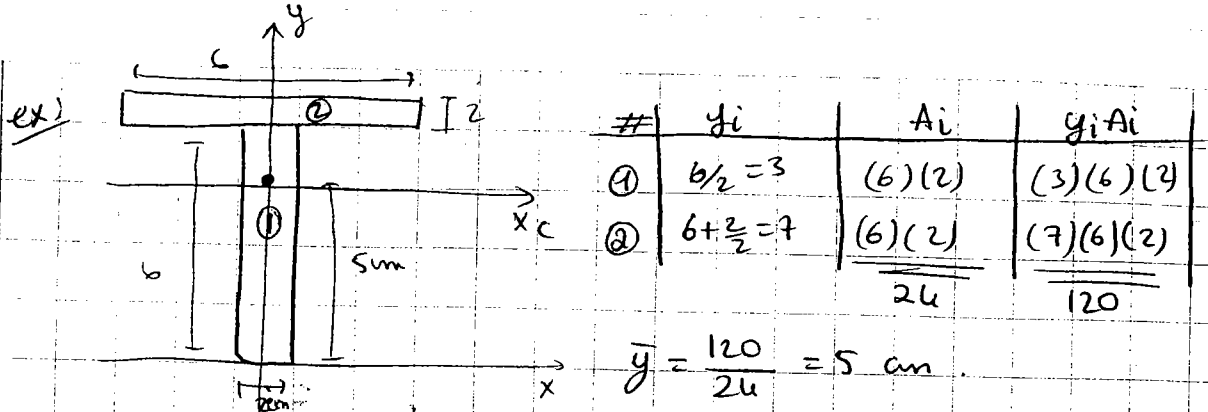 y
6
ex)
② 2
x c
①
6
5 cm
x
2cm
# | yi | Ai | yiAi
① | 6/2 = 3 | (6)(2) | (3)(6)(2)
② | 6+2/2=7 | (6)(2) | (7)(6)(2)
24 120
ȳ = 120/24 = 5 cm.